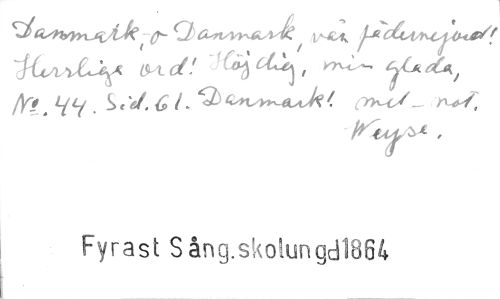 Danmark, o Danmark, vår fädernejord!
Herrliga ord! Höj dig, min glada,
No. 44. Sid. 61. Danmark! met-not.
Weyse.
Fyrast Sång.skolungd1864